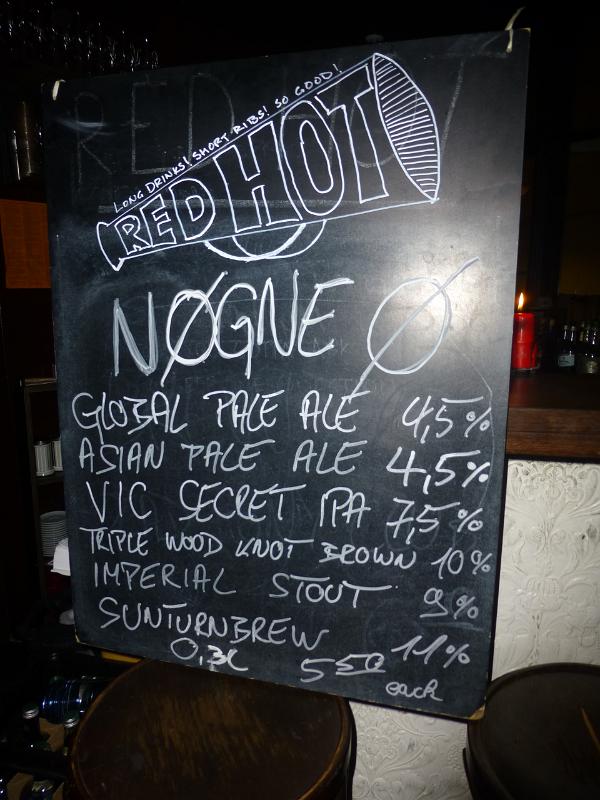 LONG DRINKS! SHORT RIBS! SO GOOD!
RED HOT
NØGNE Ø
GLOBAL PALE ALE 4,5%
ASIAN PALE ALE 4,5%
VIC SECRET IPA 7,5%
TRIPLE WOOD KNOT BROWN 10%
IMPERIAL STOUT 9%
SUNTURNBREW 11%
0,3L 5 50
each